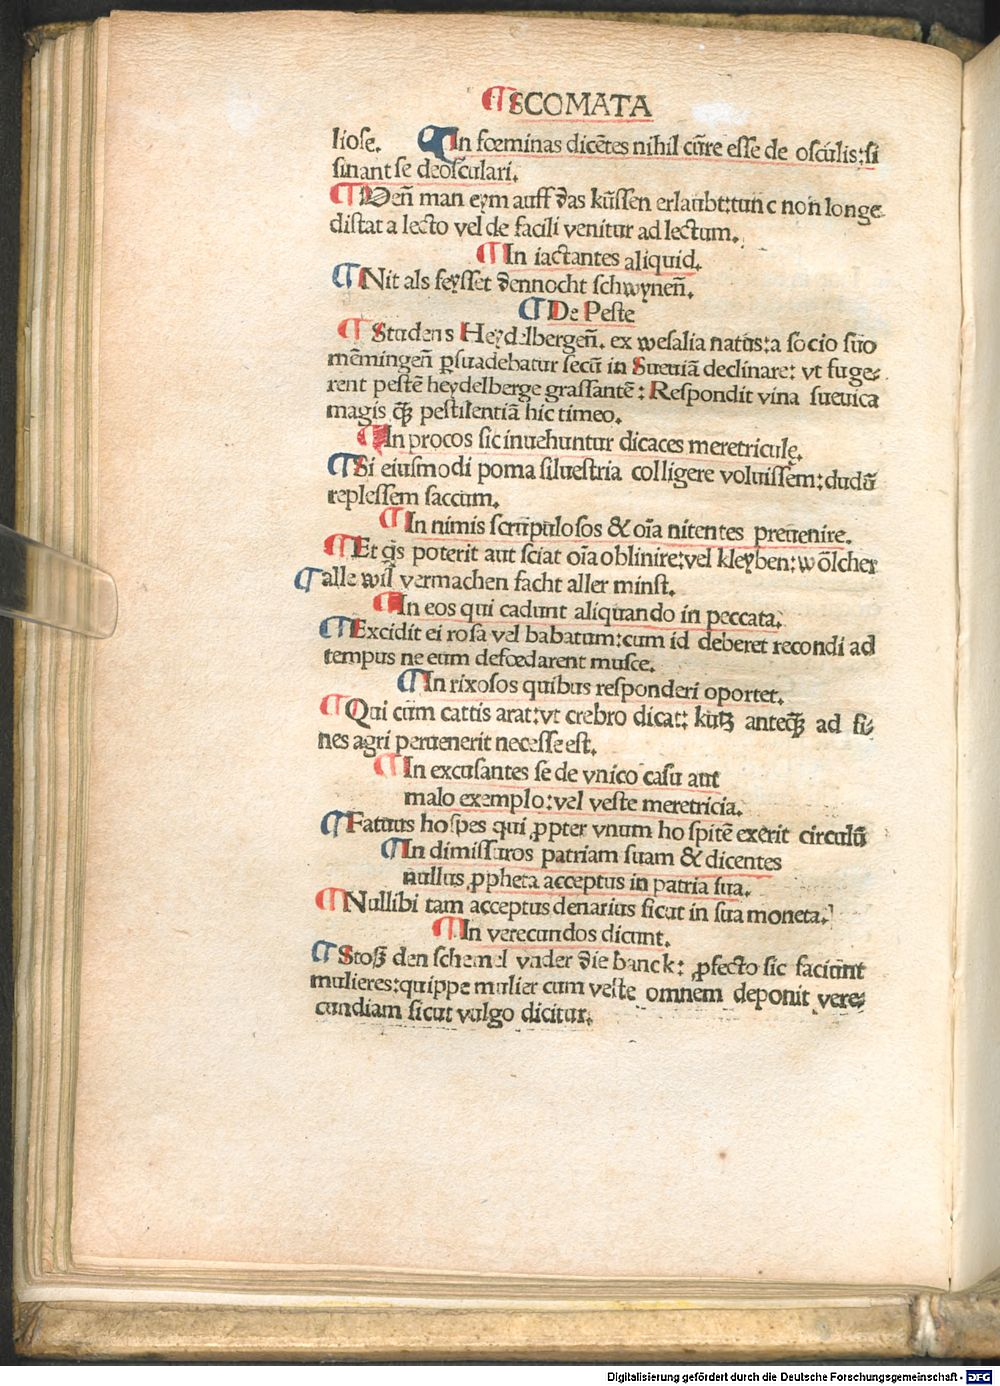 SCOMATA
liose. In fœminas dicẽtes nihil cũre esse de osculis: si
sinant se deosculari.
Deñ man eym auff das kũssen erlaubt: tunc non longe
distat a lecto vel de facili venitur ad lectum.
In iactantes aliquid.
Nit als feysset dennocht schwyneñ.
De Peste
Studens Heydelbergeñ. ex wesalia natus: a socio suo
mẽmingeñ ꝑsuadebatur secũ in Sueuiã declinare: vt fuge⸗
rent pestẽ heydelberge grassantẽ: Respondit vina sueuica
magis ꝙ̃ pestilentiã hic timeo.
In procos sic inuehuntur dicaces meretriculę.
Si eiusmodi poma siluestria colligere voluissem: dudũ
replessem saccum.
In nimis scrupulosos & oĩa nitentes preuenire.
Et q̃s poterit aut sciat oĩa oblinire: vel kleyben: wõlcher
alle wil vermachen facht aller minst.
In eos qui cadunt aliquando in peccata.
Excidit ei rosa vel babatum: cum id deberet recondi ad
tempus ne eum defœdarent musce.
In rixosos quibus responderi oportet.
Qui cum cattis arat: vt crebro dicat: kutʒ anteꝙ̃ ad fi⸗
nes agri peruenerit necesse est.
In excusantes se de vnico casu aut
malo exemplo: vel veste meretricia.
Fatuus hospes qui ꝓpter vnum hospitẽ exerit circulũ
In dimissuros patriam suam & dicentes
nullus ꝓpheta acceptus in patria sua.
Nullibi tam acceptus denarius sicut in sua moneta.
In verecundos dicunt.
Stoß den schemel vnder die banck: ꝓfecto sic faciunt
mulieres: quippe mulier cum veste omnem deponit vere⸗
cundiam sicut vulgo dicitur.
Digitalisierung gefördert durch die Deutsche Forschungsgemeinschaft - DFG